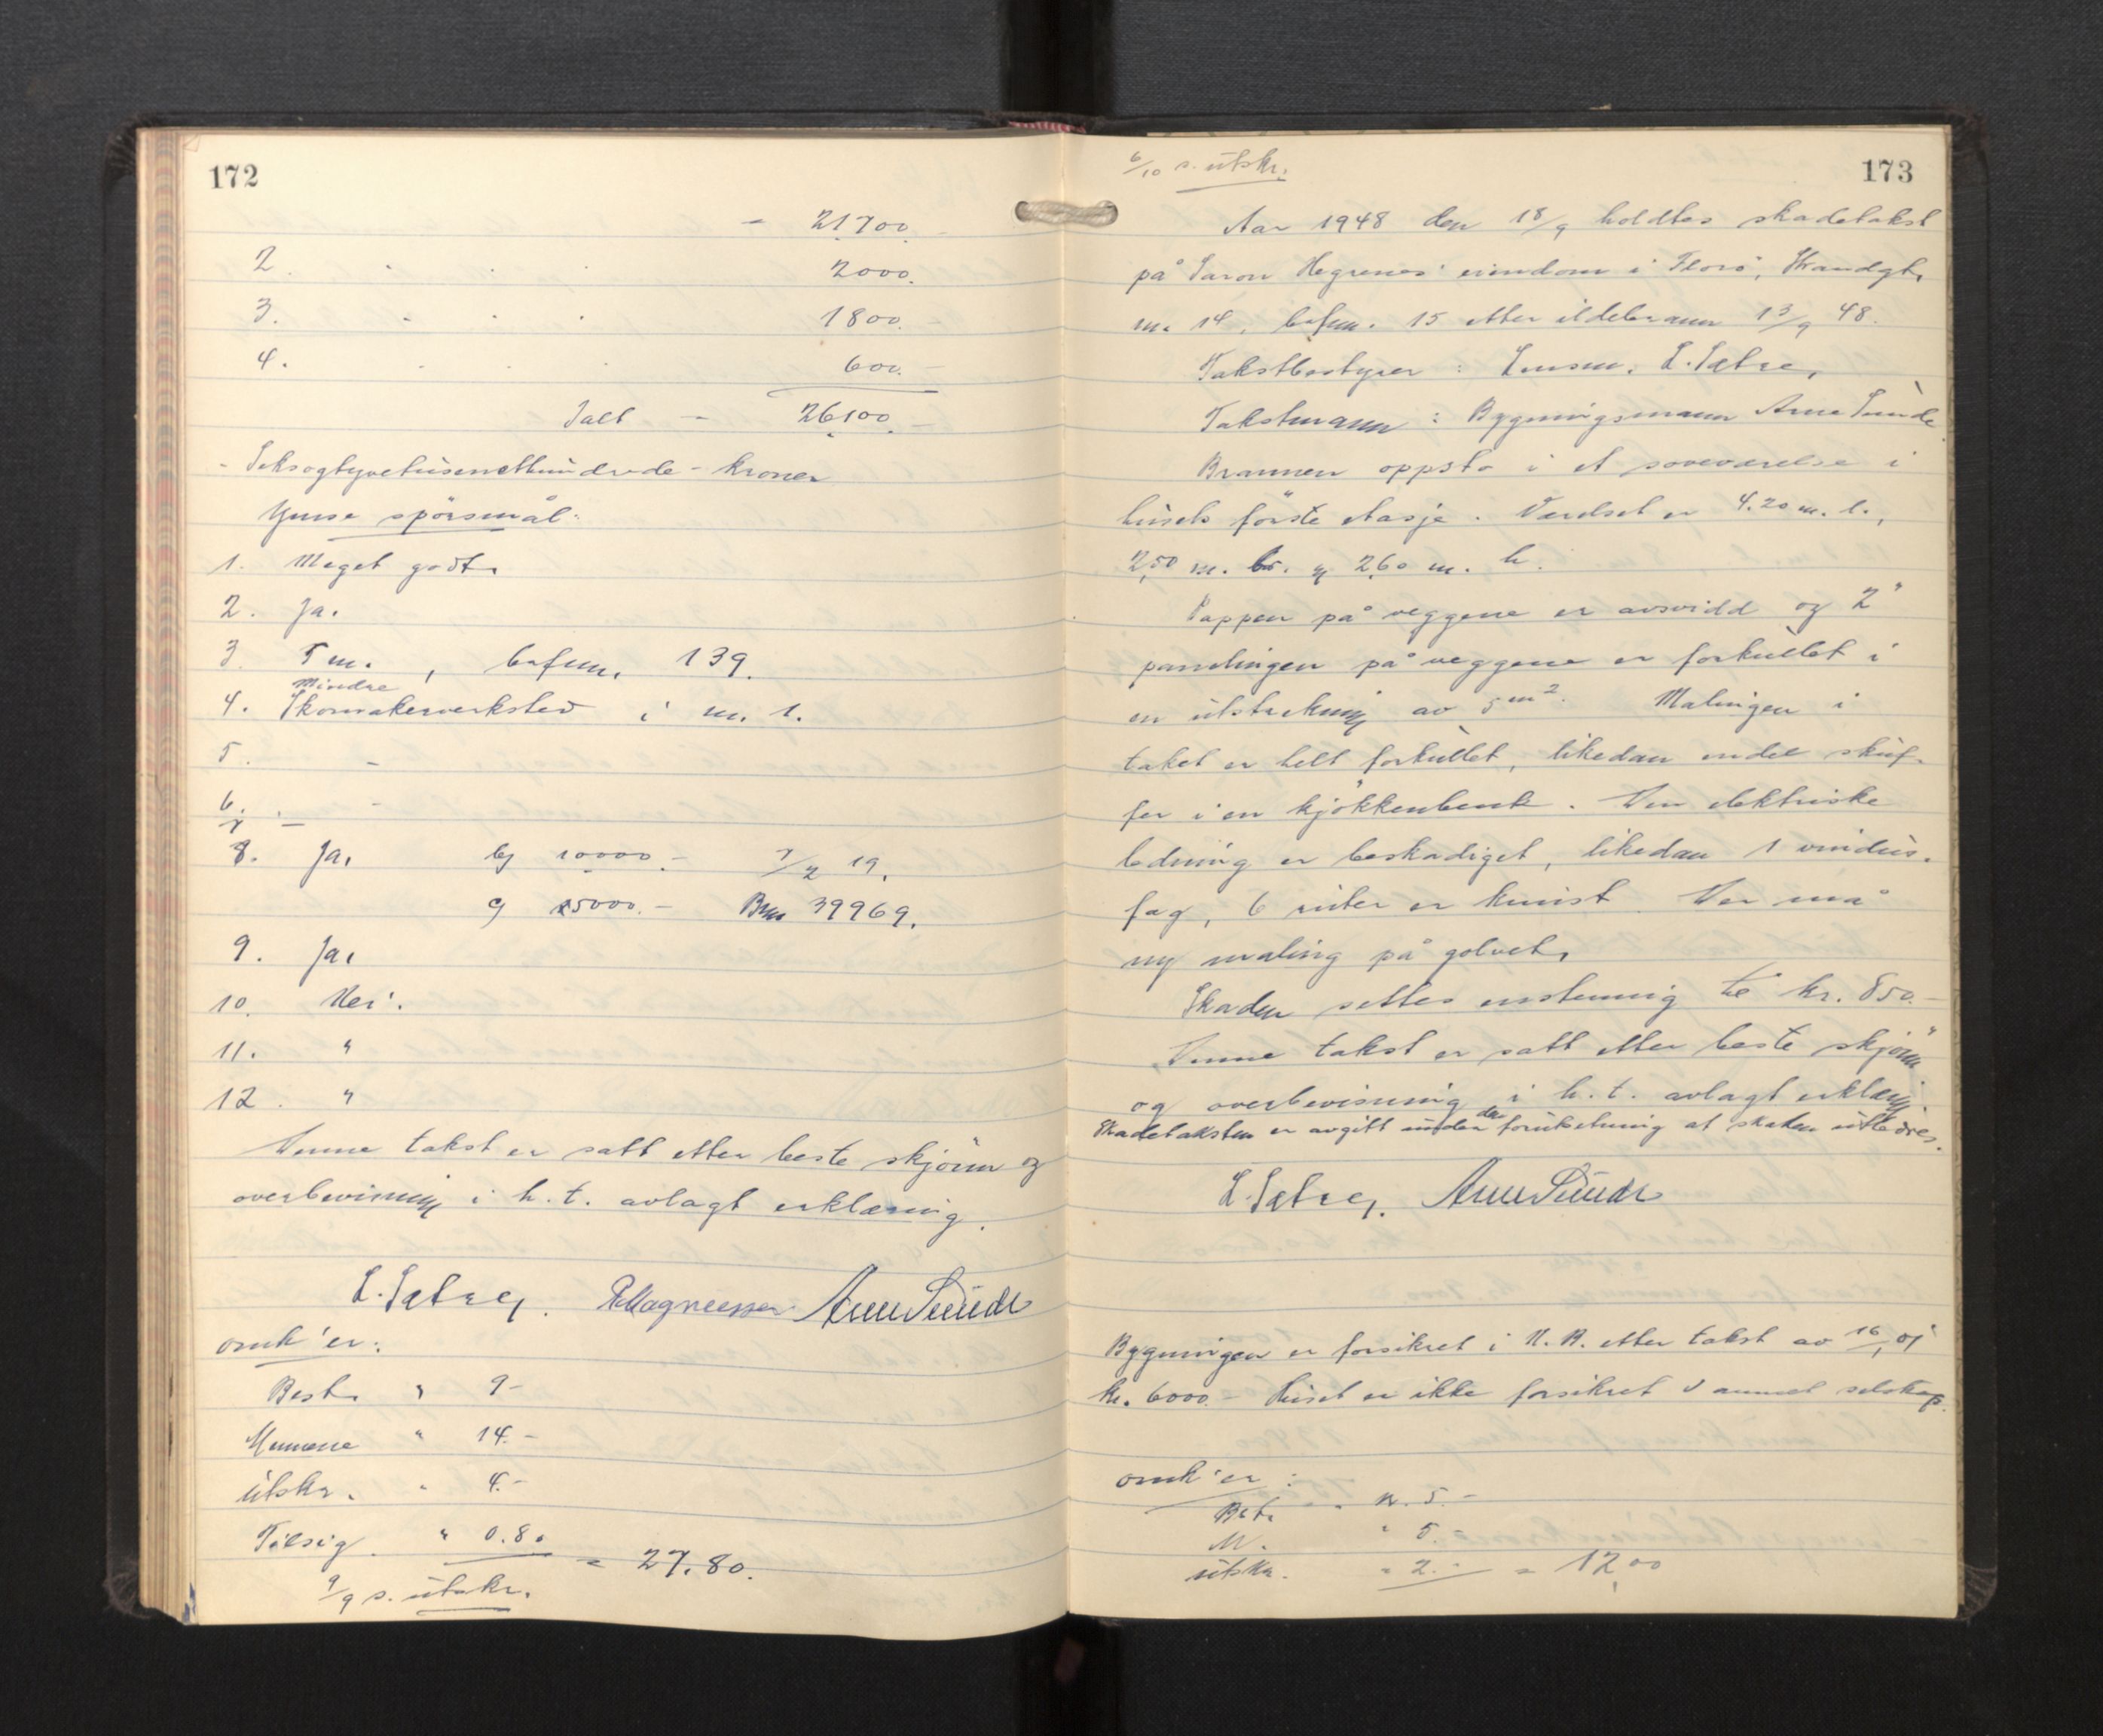 172
- 21700.-
2. " " " 2000.
3. " " " 1800.-
4. " " " 600.-
Ialt - 26100.-
- Seksogtyvetusenetthundrede - kroner
Ymse spörsmål:
1. Meget godt.
2. Ja.
3. 5 m. , brfnr. 139.
Mindre
4. Skomakerverksted i nr. 1.
5. -
6. -
7 -
8. Ja, bj 10000.- 7/2 19.
g 15000.- Bnr 39969.
9. Ja,
10. Nei.
11. "
12. "
Denne takst er satt etter beste skjönn og
overbevisning i h. t. avlagt erklæring.
L. Sætre, P. Magnussen Arne Sunde
omk'er:
Best. " 9-
Mennene " 14.-
Utskr. " 4.-
Tilsig. " 0.80 = 27.80.
9/9 s. utskr.
6/10 s. utskr.
173
Aar 1948 den 18/9 holdtes skadetakst
på Saron Hegrenes' eiendom i Florö, Strandgt.
nr. 14, brfnr. 15 etter ildebrann 13/9 48.
Takstbestyrer : Lensm. L. Sætre,
Takstmann : Bygningsmann Arne Sunde.
Brannen oppsto i et soveværelse i
husets förste etasje. Værelset er 4.20 m. l.,
2,50 m. br. og 2,60 m. h.
Pappen på veggene er avsvidd og 2"
panelingen på veggene er forkullet i
en utstrekning av 5 m2. Malingen i
taket er helt forkullet, likedan endel skuf-
fer i en kjökkenbenk. Den elektriske
ledning er beskadiget, likedan 1 vindus-
fag, 6 ruter er knust. Der må
ny maling på golvet.
Skaden settes enstemmig til kr. 850.-
Denne takst er satt etter beste skjönn
og overbevisning i h. t. avlagt erklæring.
Skadetaksten er avgitt under den forutsetning at skaden utbedres.
L. Sætre, Arne Sunde
Bygningen er forsikret i N. B. etter takst av 16/1 07
kr. 6000.- Huset er ikke forsikret i annet selskap.
omk'er:
Best. " kr. 5.-
M. " 5.-
utskr. " 2.- = 12,00